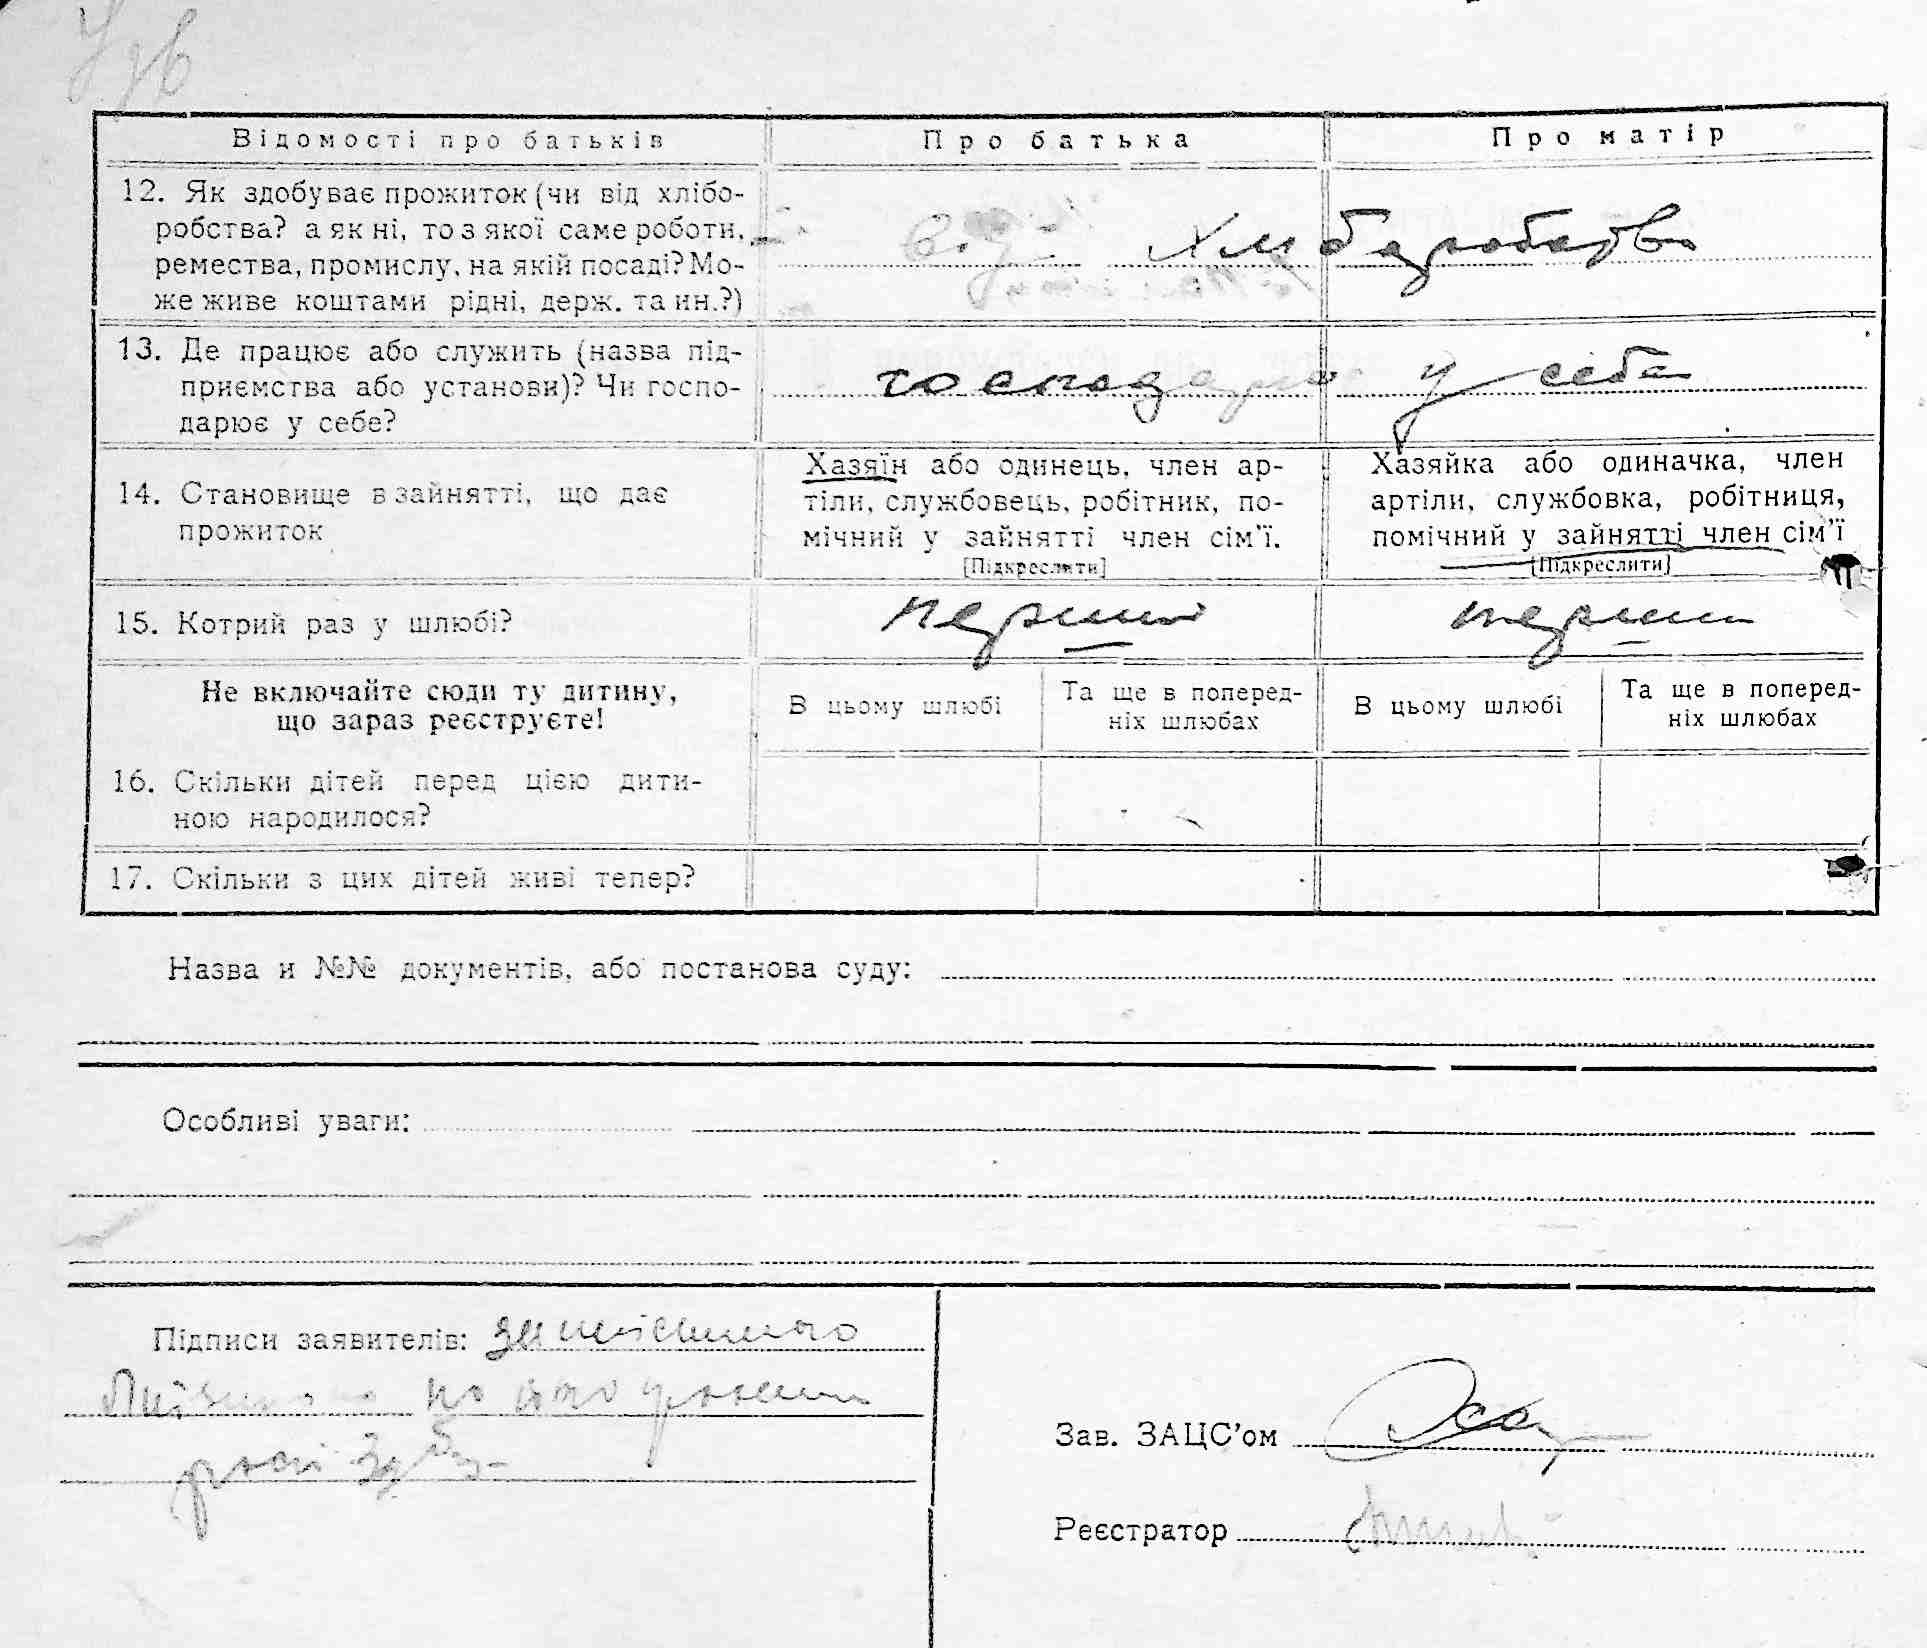 Відомості про батьків
Про батька
Про матір
12. Як здобуває прожиток (чи від хлібо-
робства? а як ні, то з якої саме роботи,
ремества, промислу, на якій посаді? Мо-
же живе коштами рідні, держ. та ин.?)
с. г.
13. Де працює або служить (назва під-
приємства або установи)? Чи госпо-
дарює у себе?
господарює у себе
14. Становище в зайнятті, що дає
прожиток
Хазяїн або одинець, член ар-
тіли, службовець, робітник, по-
мічний у зайнятті член сім’ї.
[Підкреслити]
Хазяйка або одиначка, член
артіли, службовка, робітниця,
помічний у зайнятті член сім’ї
[Підкреслити]
15. Котрий раз у шлюбі?
перший
перший
Не включайте сюди ту дитину,
що зараз реєструєте!
В цьому шлюбі
Та ще в поперед-
ніх шлюбах
В цьому шлюбі
Та ще в поперед-
ніх шлюбах
16. Скільки дітей перед цією дити-
ною народилося?
17. Скільки з цих дітей живі тепер?
Назва и №№ документів, або постанова суду:
Особливі уваги:
Підписи заявителів:
Зав. ЗАЦС’ом
Реєстратор